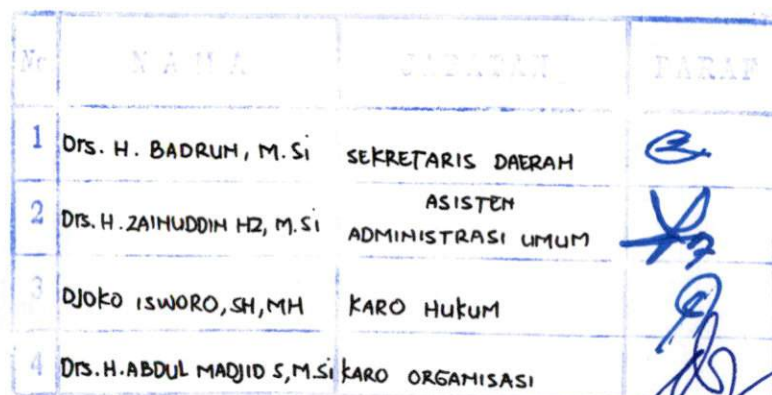 No NAMA JABATAN PARAF
1 Drs. H. BADRUN, M.Si SEKRETARIS DAERAH
2 Drs. H. ZAINUDDIN HZ, M.Si ASISTEN
ADMINISTRASI UMUM
3 DJOKO ISWORO, SH, MH KARO HUKUM
4 Drs. H. ABDUL MADJID S, M.Si KARO ORGANISASI